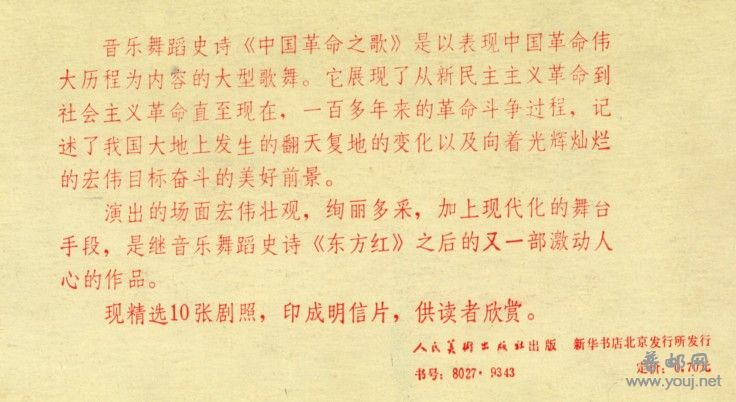 音乐舞蹈史诗《中国革命之歌》是以表现中国革命伟
大历程为内容的大型歌舞。它展现了从新民主主义革命到
社会主义革命直至现在，一百多年来的革命斗争过程，记
述了我国大地上发生的翻天复地的变化以及向着光辉灿烂
的宏伟目标奋斗的美好前景。
演出的场面宏伟壮观，绚丽多采，加上现代化的舞台
手段，是继音乐舞蹈史诗《东方红》之后的又一部激动人
心的作品。
现精选10张剧照，印成明信片，供读者欣赏。
人民美術出版社出版 新华书店北京发行所发行
书号：8027·9343 定价：0.70元
普邮网
www.youj.net